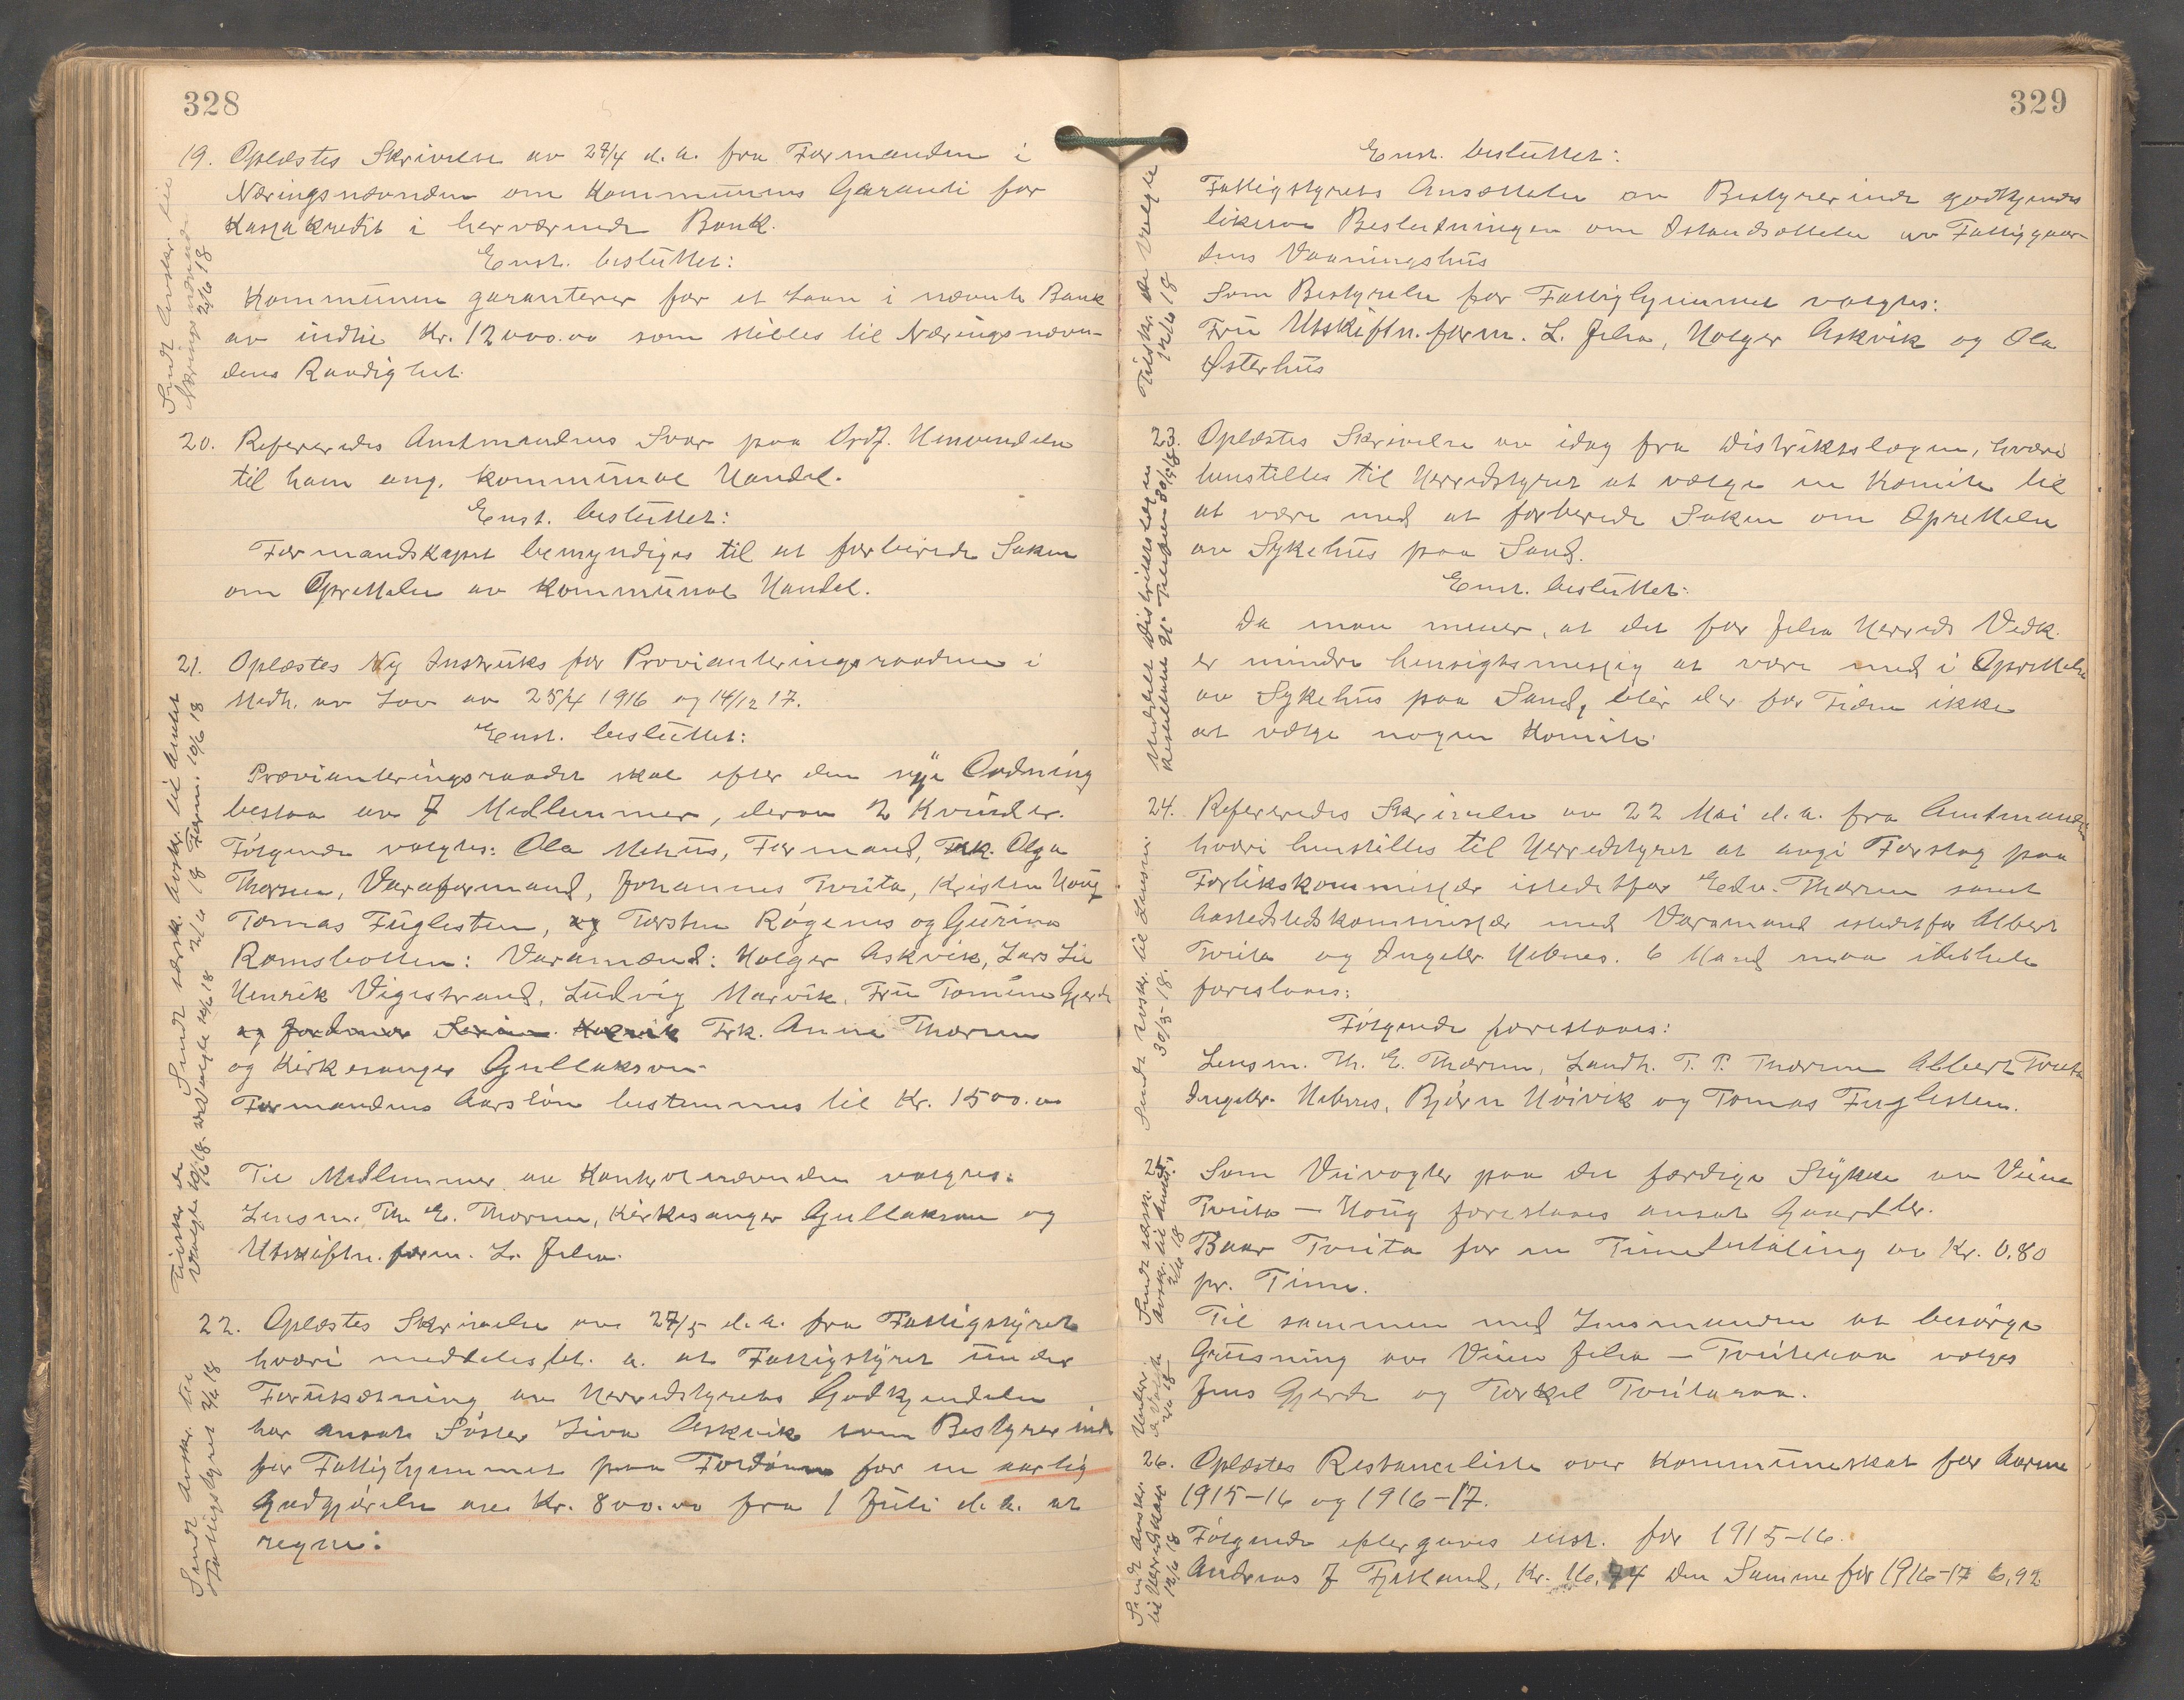 328
19. Oplæstes Skrivelse av 27/4 d. a. fra Formanden i
Næringsnævnden om Kommunens Garanti for
Kassakredit i herværende Bank.
Enst. besluttet:
Kommunen garanterer for et Laan i nævnte Bank
av indtil Kr. 12000.00 som stilles til Næringsnævn-
dens Raadighet.
Sendt Avskr. til
Næringsnævnden
2/6 18
20. Refereredes Amtmandens Svar paa Ordf. Henvendelse
til ham ang. kommunal Handel.
Enst. besluttet:
Formandskapet bemyndiges til at forberede Saken
om Oprettelse av kommunal Handel.
21. Oplæstes Ny Instruks for Provianteringsraadene i
Medh. av Lov av 25/4 1916 og 14/12 17.
Enst. besluttet:
Provianteringsraadet skal efter den nye Ordning
bestaa av 7 Medlemmer, derav 2 Kvinder.
Følgende valgtes: Ola Mehus, Formand, Frk. Olga
Thorsen, Varaformand, Johannes Tveita, Kristen Houg
Tomas Fuglesteen, og Torsten Røgenes og Gurina
Ramsbotten: Varamænd: Holger Askvik, Lars Lie
Henrik Vigestrand, Ludvig Marvik, Fru Tomine Gjerde
Frk. Anna Thorsen
og Kirkesanger Gullakson
Formandens Aarsløn bestemmes til Kr. 1500.00
Sendt særsk. Avskr. til Amtet
2/6 18 Form. 10/6 18
Til Medlemmer av Kontrolnævnden valgtes:
Lensm. Th. E. Thorsen, Kirkesanger Gullakson og
Utskiftn. form. L. Jelsa.
Tilskr. de
Valgte
22. Oplæstes Skrivelse av 27/5 d. a. fra Fattigstyret
hvori meddeles bl. a. at Fattigstyret under
Forutsætning av Herredstyrets Godkjendelse
har ansat Søster Liva Askvik som Bestyrerinde
for Fattighjemmet paa Foldøen for en aarlig
Godgjørelse av Kr. 800.00 fra 1 Juli d. a. at
regne:
Sendt Avskr. til
Fattigstyret 2/6 18
329
Enst. besluttet:
Fattigstyrets Ansættelse av Bestyrerinde godkjendes
likesaa Beslutningen om Istandsættelse av Fattiggaar-
dens Vaaningshus
Som Bestyrelse for Fattighjemmet valgtes:
Fru Utskiftn. form. L. Jelsa, Holger Askvik og Ola
Østerhus
Tilskr. de Valgte
12/6 18
23. Oplæstes Skrivelse av idag fra Distriktslægen, hvori
henstilles til Herredstyret at vælge en Komite til
at være med at forberede Saken om Oprettelse
av Sykehus paa Sand.
Enst. besluttet:
Da man mener, at det for Jelsa Herreds Vedk.
er mindre hensigtsmessig at være med i Oprettelse
av Sykehus paa Sand, blir der for Tiden ikke
at vælge nogen Komite.
Meddelt Distriktslægen
24. Refereredes Skrivelse av 22 Mai d. a. fra Amtmanden
hvori henstilles til Herredstyret at avgi Forslag paa
Forlikskommissær istedetfor Edv. Thorsen samt
Aastedstedskommissær med Varamand istedetfor Albert
Tveita og Ingebr. Hebnes. 6 Mand maa ialt
foreslaaes:
Følgende foreslaaes:
Lensm. Th. E. Thorsen, Landh. T. P. Thorsen Albert Tveita
Ingebr. Hebnes, Bjørn Høivik og Tomas Fuglesteen.
Sendt Avskr. til Lensm.
30/5-18.
25. Som Veivogter paa det færdige Stykke av Veien
Tveita – Houg foreslaaes ansat Gaardbr.
Baar Tveita for en Timebetaling av Kr. 0.80
pr. Time.
Til sammen med Lensmanden at besørge
Grusning av Veien Jelsa – Tveiteraa valges
Jens Gjerde og Torkel Tveitaraa.
Sendt særsk.
Avskr. til Amtet
2/6 18
26. Oplæstes Restanceliste over Kommuneskat for Aarene
1915–16 og 1916–17.
Følgende eftergaves enst. for 1915–16.
Andreas J Fjetland, Kr. 16,74 den Samme for 1916–17 6,92
Sendt Avskr.
til Herredskass
12/6 18